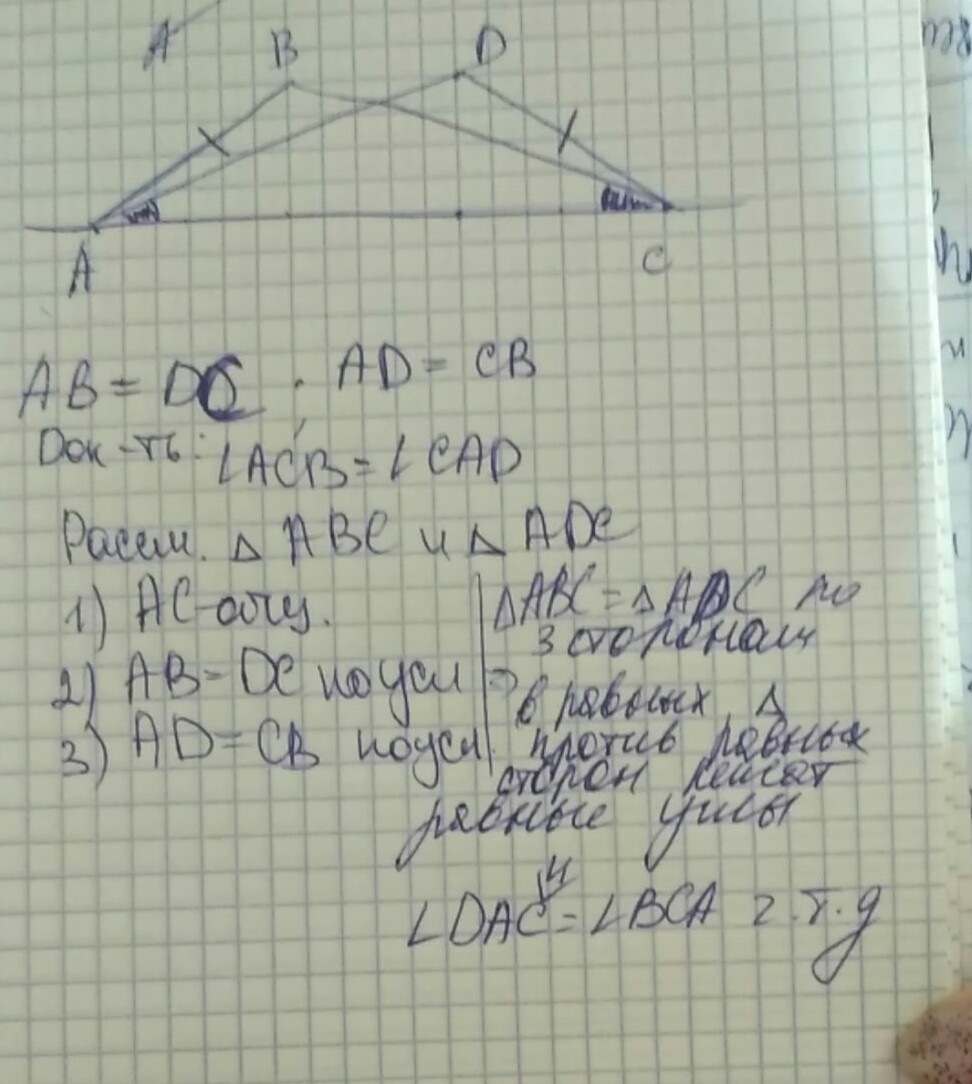 A
B
D
A
C
AB = DC ; AD = CB
Док-ть: ∠ACB = ∠CAD
Рассм. △ ABC и △ ADC
1) AC-общ.
2) AB = DC по усл
3) AD = CB по усл.
△ABC = △ADC по
3 сторонам
⇒
в равных △
против равных
сторон лежат
равные углы
⇓
∠DAC = ∠BCA ч.т.д